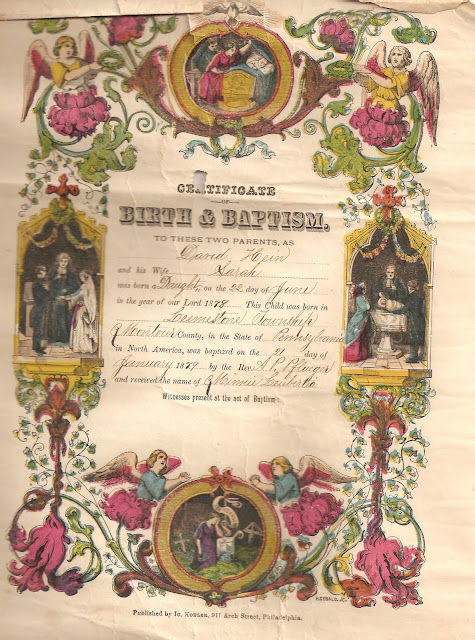 CERTIFICATE
OF
BIRTH & BAPTISM.
TO THESE TWO PARENTS, AS
David Hein
and his Wife Sarah
was born a Daught, on the 22 day of June
in the year of our Lord 1878 This Child was born in
Limestone Township
Montour County, in the State of Pennsylvania
in North America, was baptized on the 21 day of
January 1879 by the Rev. Pfluger
and received the name of Minnie
Witnesses present at the act of Baptism
Published by IG. KOHLER, 911 Arch Street, Philadelphia.